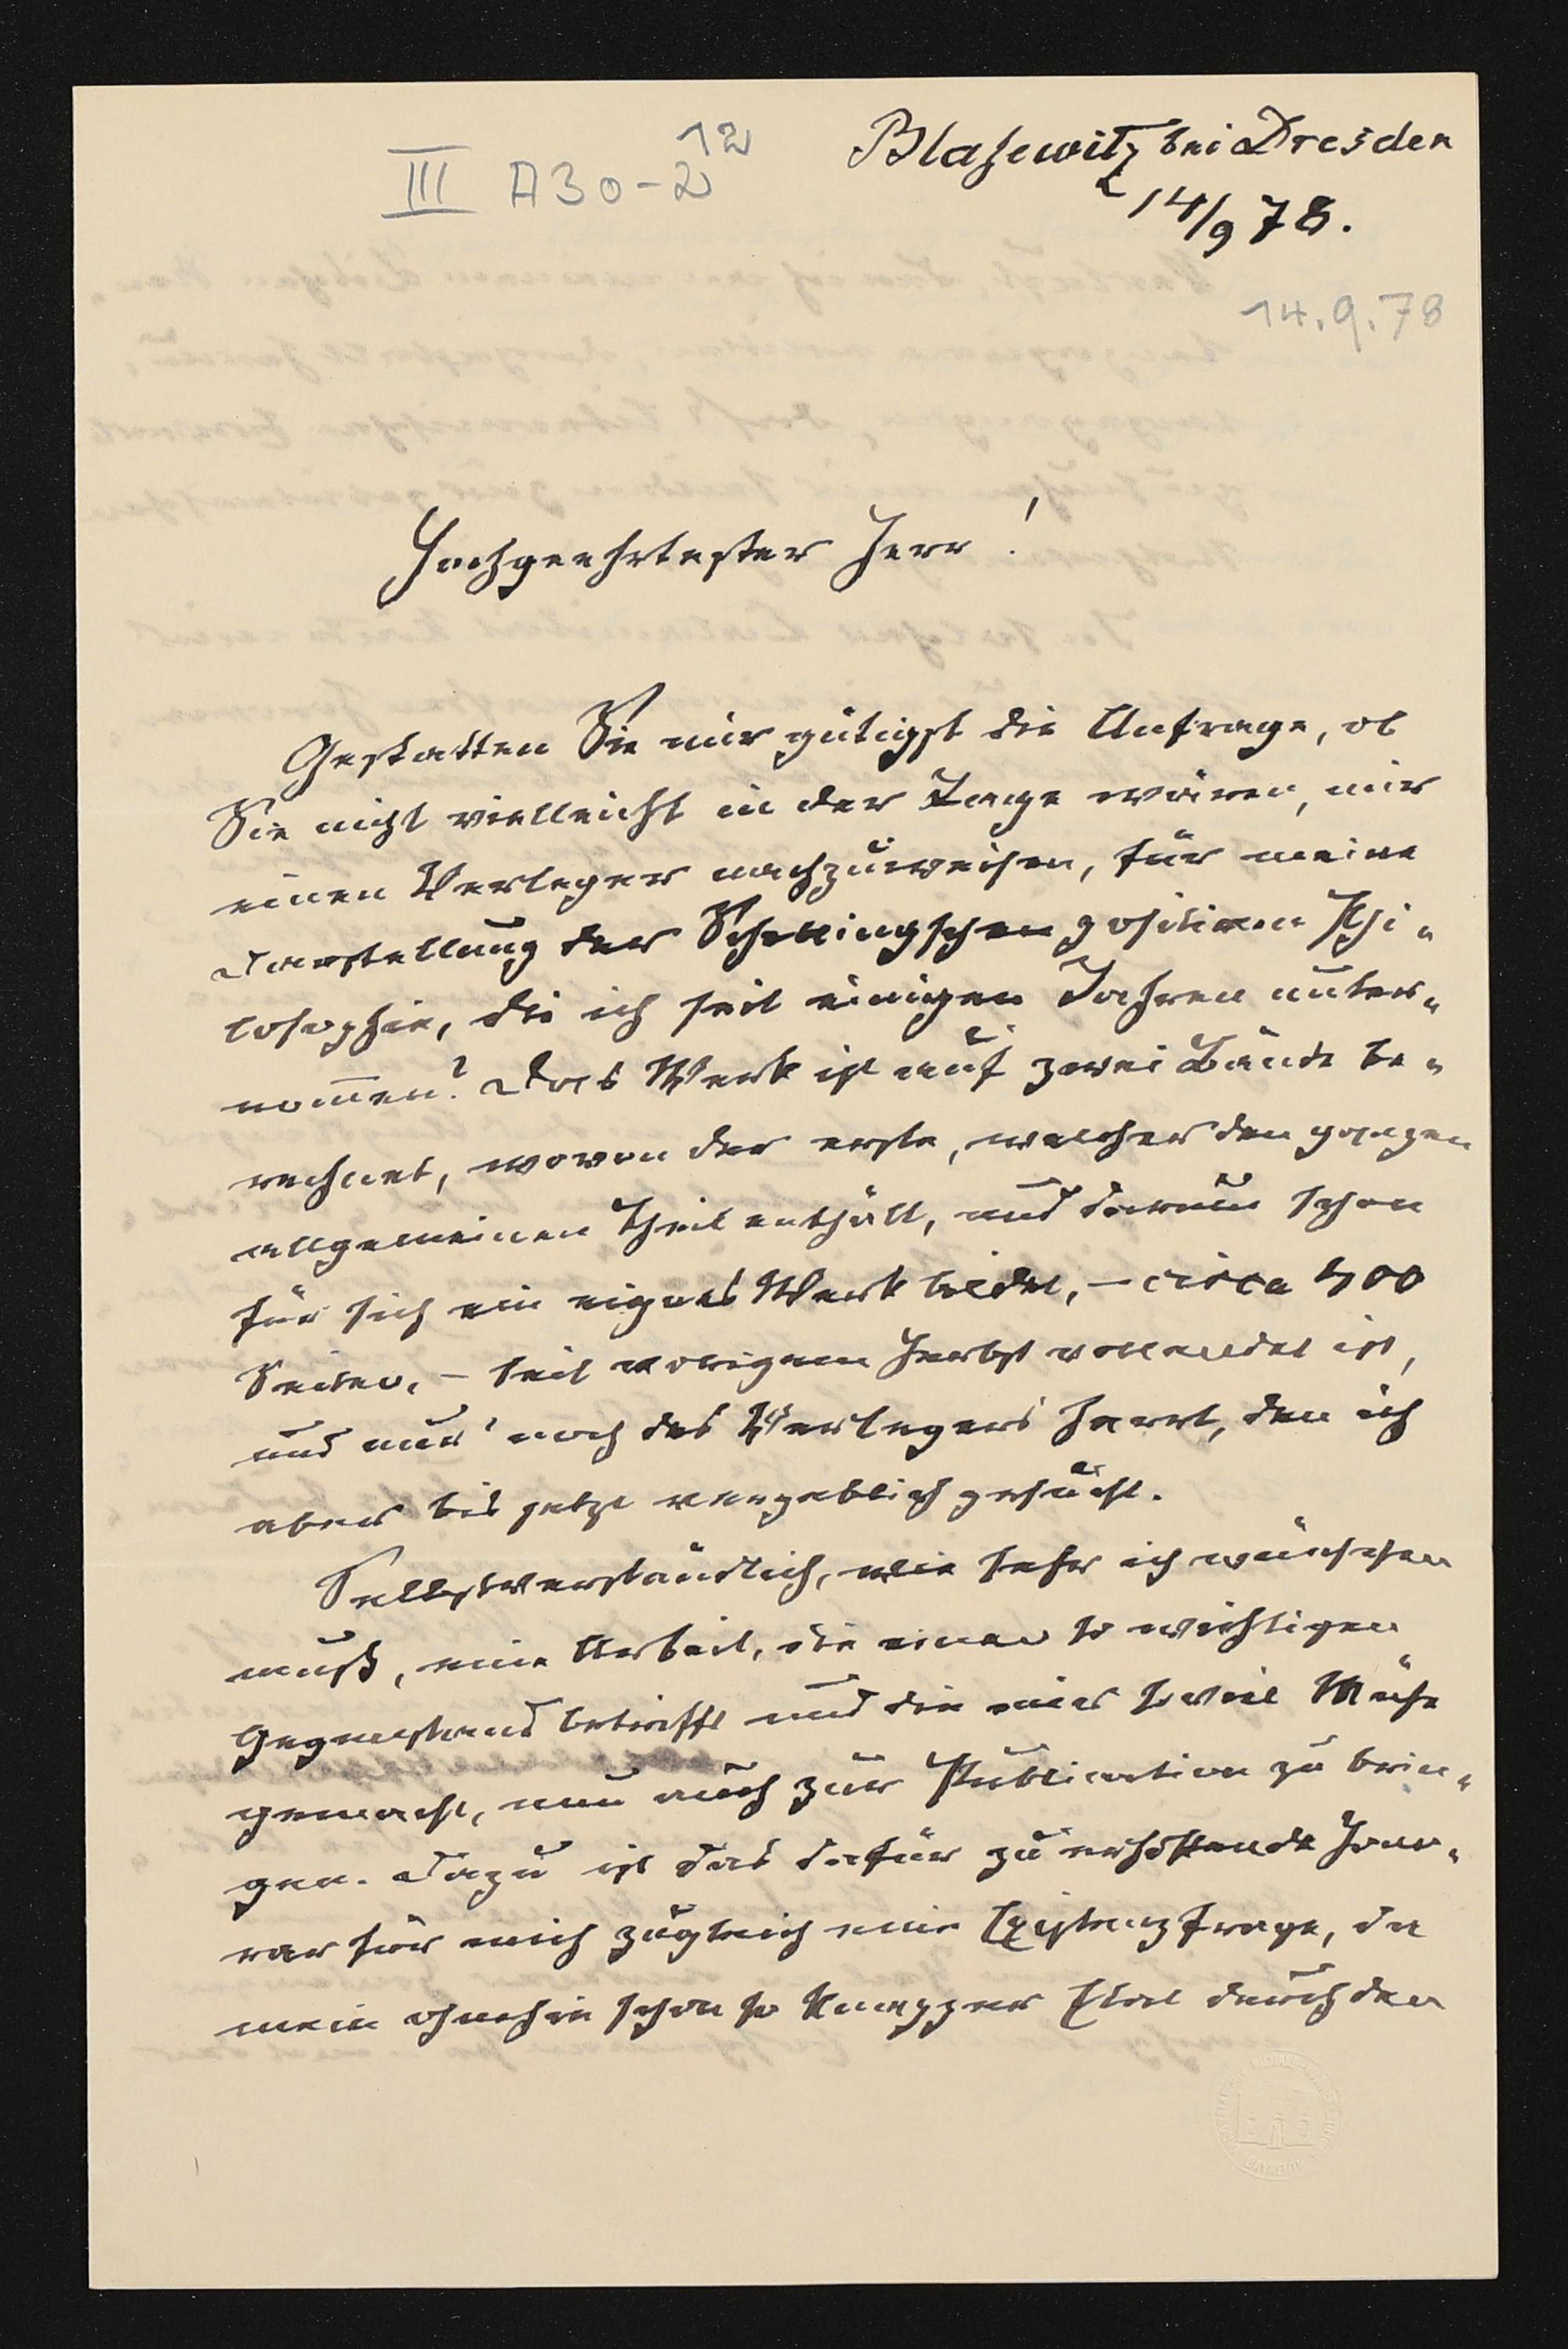 III A30-2 12
Blasewitz bei Dresden
14/9 78.
14.9.78
Hochgeehrtester Herr!
Gestatten Sie mir gütigst die Anfrage, ob
Sie nicht vielleicht in der Lage wären, mir
einen Verleger nachzuweisen, für meine
Darstellung der Schellingschen positiven Phi-
losophie, die ich seit einigen Jahren unter-
nom̄en? Das Werk ist auf zwei Bände be-
rechnet, wovon der erste, welcher den ganzen
allgemeinen Theil enthält, und darum schon
für sich ein eignes Werk bildet, – circa 400
Seiten, – seit vorigem Herbst vollendet ist,
und nur noch des Verlegers harrt, den ich
aber bis jetzt vergeblich gesucht.
Selbstverständlich, wie sehr ich wünschen
muß, eine Arbeit, die einen so wichtigen
Gegenstand betrifft und die mir so viel Mühe
gemacht, nun auch zur Publication zu brin-
gen. Dazu ist das dafür zu erhoffende Hono-
rar für mich zugleich eine Existenzfrage, da
mein ohnehin schon so knapper Etat durch den